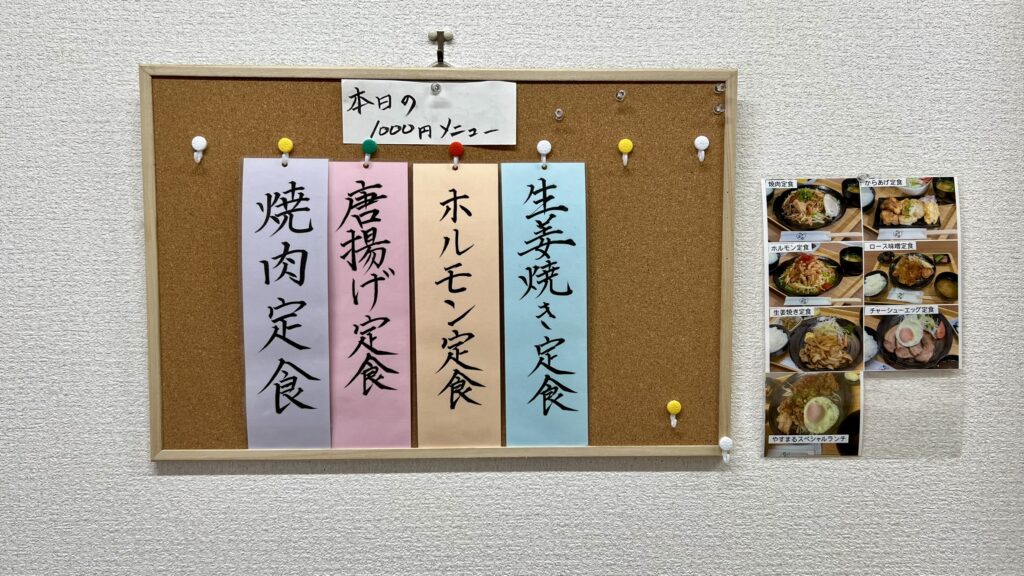 本日の
1000円メニュー
焼肉定食
唐揚げ定食
ホルモン定食
生姜焼き定食
焼肉定食
からあげ定食
ホルモン定食
ロース味噌定食
生姜焼き定食
チャーシューエッグ定食
やすまるスペシャルランチ